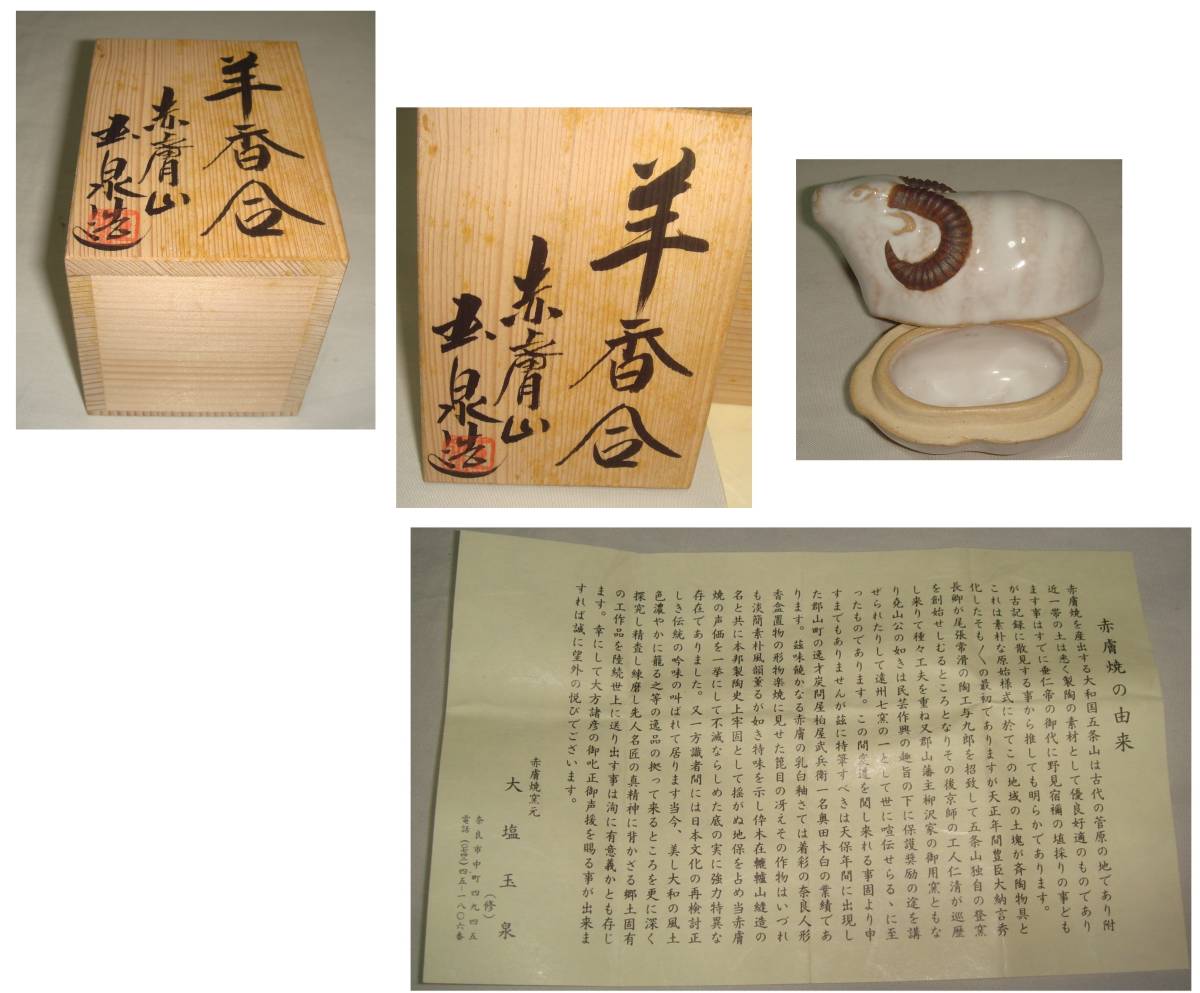 羊香合
赤膚山
玉泉造
羊香合
赤膚山
玉泉造
赤膚焼の由来
赤膚焼を産出する大和国五条山は古代の菅原の地であり附
近一帯の土は悉く製陶の素材として優良好適のものであり
ます事はすでに垂仁帝の御代に野見宿禰の埴採りの事ども
が古記録に散見する事から推しても明らかであります。
これは素朴な原始様式に於てこの地域の土塊が斉陶物具と
化したそも〳〵の最初でありますが天正年間豊臣大納言秀
長卿が尾張常滑の陶工与九郎を招致して五条山独自の登窯
を創始せしむるところとなりその後京師の工人仁清が巡歴
し来りて種々工夫を重ね又郡山藩主柳沢家の御用窯ともな
り尭山公の如きは民芸作興の趣旨の下に保護奨励の途を講
ぜられたりして遠州七窯の一として世に喧伝せらるゝに至
ったものであります。この間変遷を関し来れる事固より申
すまでもありませんが茲に特筆すべきは天保年間に出現し
た郡山町の逸才炭問屋柏屋武兵衛一名奥田木白の業績であ
ります。茲味饒かなる赤膚の乳白釉さては着彩の奈良人形
香盒置物の形物楽焼に見せた箆目の冴えその作物はいづれ
も淡簡素朴風韻薫るが如き特味を示し伜木在轆轤山縫造の
名と共に本邦製陶史上牢固として揺がぬ地保を占め当赤膚
焼の声価を一挙にして不滅ならしめた底の実に強力特異な
存在でありました。又一方識者間には日本文化の再検討正
しき伝統の吟味の叫ばれて居ります当今、美し大和の風土
色濃やかに籠る之等の逸品の拠って来るところを更に深く
探究し精査し練磨し先人名匠の真精神に背かざる郷土固有
の工作品を陸続世上に送り出す事は洵に有意義かとも存じ
ます。幸にして大方諸彦の御叱正御声援を賜る事が出来ま
すれば誠に望外の悦びでございます。
赤膚焼窯元
大塩玉泉
(修)
奈良市中町四九四五
電話(〇七四二)四五-一八〇六番